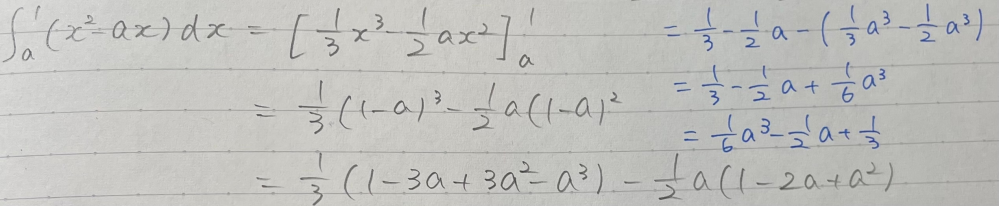 ∫ₐ¹(x²-ax)dx = [1/3 x³ - 1/2 ax²]ₐ¹
= 1/3 (1-a)³ - 1/2 a(1-a)²
= 1/3 (1-3a+3a²-a³) - 1/2 a(1-2a+a²)
= 1/3 - 1/2 a - (1/3 a³ - 1/2 a³)
= 1/3 - 1/2 a + 1/6 a³
= 1/6 a³ - 1/2 a + 1/3